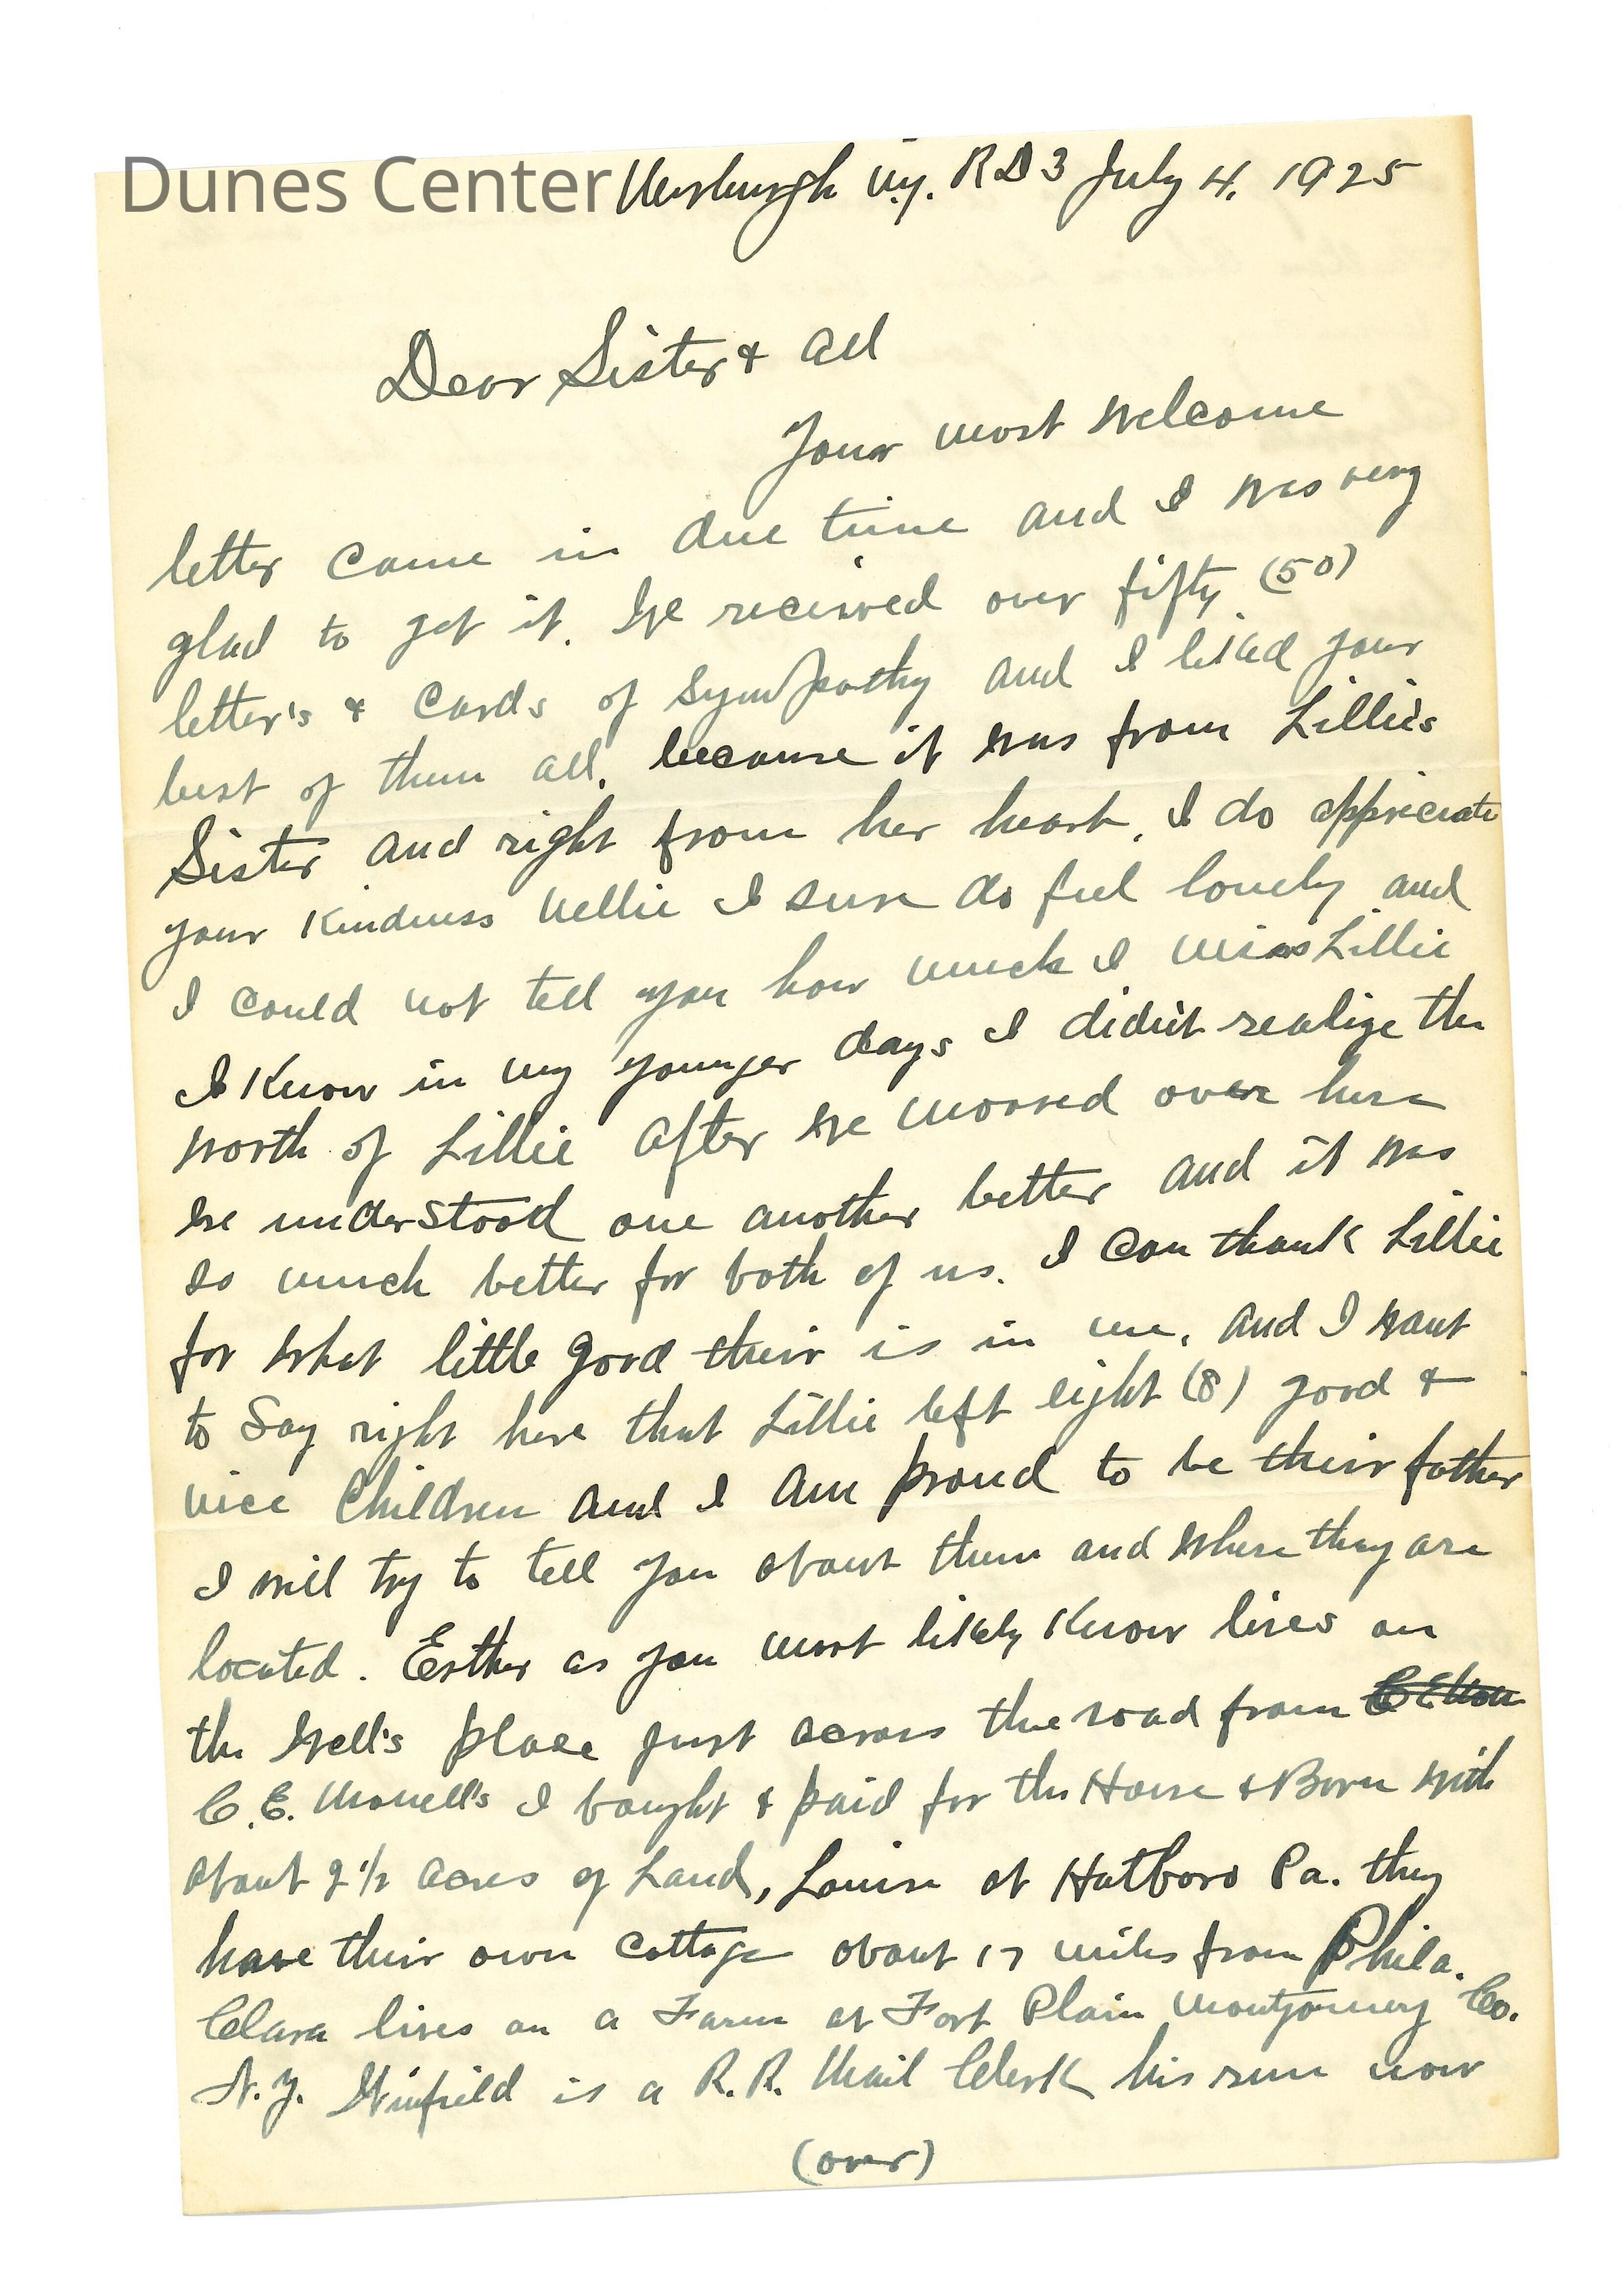 Dunes Center Newburgh N.Y. R D 3 July 4, 1925
Dear Sister & all
Your most welcome
letter came in due time and I was very
glad to get it. We received over fifty (50)
letter's & cards of sympathy and I liked your
best of them all. because it was from Lillie's
Sister and right from her heart. I do appreciate
your kindness Nellie I sure do feel lonely and
I could not tell you how much I miss Lillie
I know in my younger days I didn't realize the
worth of Lillie after we mooved over here
we understood one another better and it was
so much better for both of us. I can thank Lillie
for what little good their is in me. and I want
to say right here that Lillie left eight (8) good &
nice Children and I am proud to be their father
I will try to tell you about them and where they are
located. Esther as you most likely know lives on
the Well's place just across the road from
C.E. I bought & paid for the House & Barn with
about 2 1/2 acres of Land, Louise at Hatboro Pa. they
have their own cottage about 17 miles from Phila.
Clara lives on a Farm at Fort Plain Montgomery Co.
N.Y. Winfield is a R.R. Mail Clerk his run now
(over)